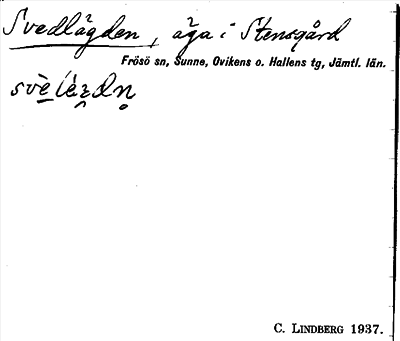 Svedlägden, äga i Stensgård
Frösö sn, Sunne, Ovikens o. Hallens tg, Jämtl. län.
C. LINDBERG 1937.